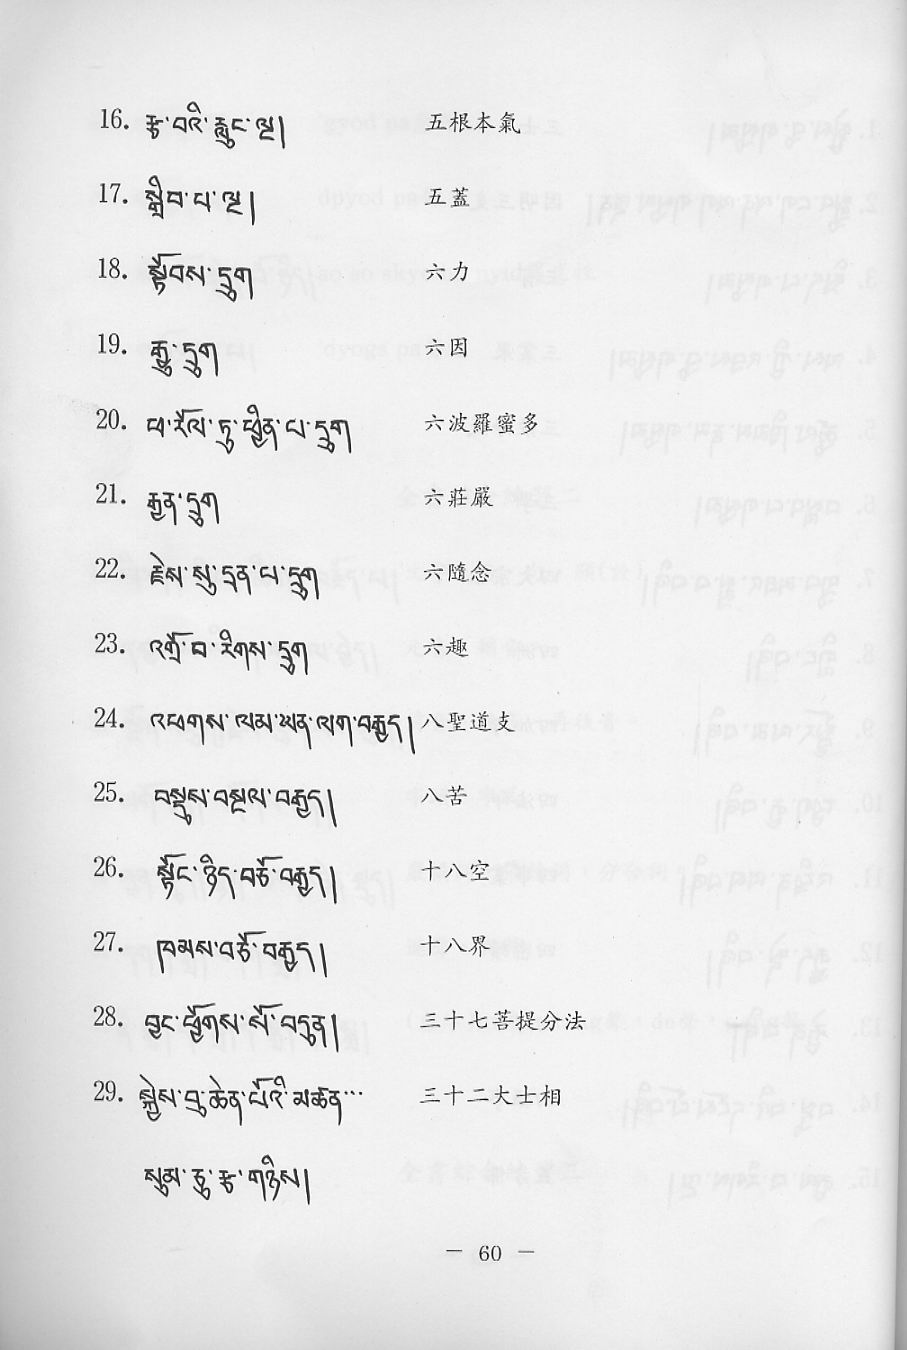 16. རྩ་བའི་རླུང་ལྔ། 五根本氣
17. སྒྲིབ་པ་ལྔ། 五蓋
18. སྟོབས་དྲུག 六力
19. རྒྱུ་དྲུག 六因
20. ཕ་རོལ་ཏུ་ཕྱིན་པ་དྲུག 六波羅蜜多
21. རྒྱན་དྲུག 六莊嚴
22. རྗེས་སུ་དྲན་པ་དྲུག 六隨念
23. འགྲོ་བ་རིགས་དྲུག 六趣
24. འཕགས་ལམ་ཡན་ལག་བརྒྱད། 八聖道支
25. བསྡུས་བསྔལ་བརྒྱད། 八苦
26. སྟོང་ཉིད་བཅོ་བརྒྱད། 十八空
27. ཁམས་བཅོ་བརྒྱད། 十八界
28. བྱང་ཕྱོགས་སོ་བདུན། 三十七菩提分法
29. སྐྱེས་བུ་ཆེན་པོའི་མཚན… 三十二大士相
སུམ་ཅུ་རྩ་གཉིས།
— 60 —